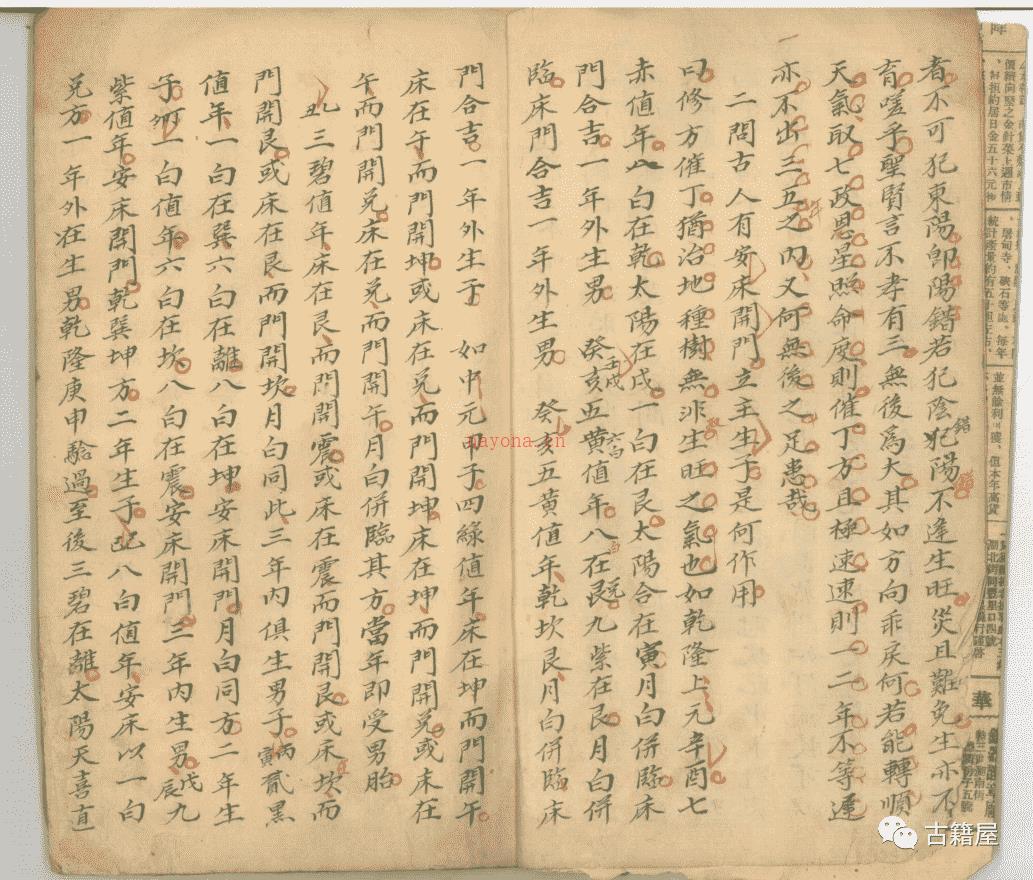 者不可犯東陽郎陽錯若犯陰犯陽不逢生旺災且難免生亦不
錯
育嗟乎聖賢言不孝有三無後為大其如方向乖戾何若能轉順
天氣取七政恩星照命度則催丁方且極速速則一二年不等遲
亦不出三五之内又何無後之足患哉
年
二問古人有安床開門立主生子是何作用
曰修方催丁猶治地種樹無非生旺之氣也如乾隆上元辛酉七
赤值年八白在乾太陽在戌一白在艮太陽合在寅月白併臨床
門合吉一年外生男 癸亥五黄值年八在艮九紫在艮月白併
壬戌
六白
臨床門合吉一年外生男 癸亥五黄值年乾坎艮月白併臨床
門合吉一年外生子 如中元甲子四綠值年床在坤而門開午
床在午而門開坤或床在兑而門開坤床在坤而門開兑或床在
午而門開兑床在兑而門開午月白併臨其方當年即受男胎
三碧值年床在艮而門開震或床在震而門開艮或床坎而
門開艮或床在艮而門開坎月白同此三年内俱生男子丙寅貳黑
值年一白在巽六白在離八白在坤安床開門月白同方二年生
子一白值年六白在坎八白在震安床開門三年内生男戊辰九
紫值年安床開門乾巽坤方二年生子八白值年安床以一白
兑方一年外在生男乾隆庚申驗過至後三碧在離太陽天喜直
華
nayona.cn
古籍屋